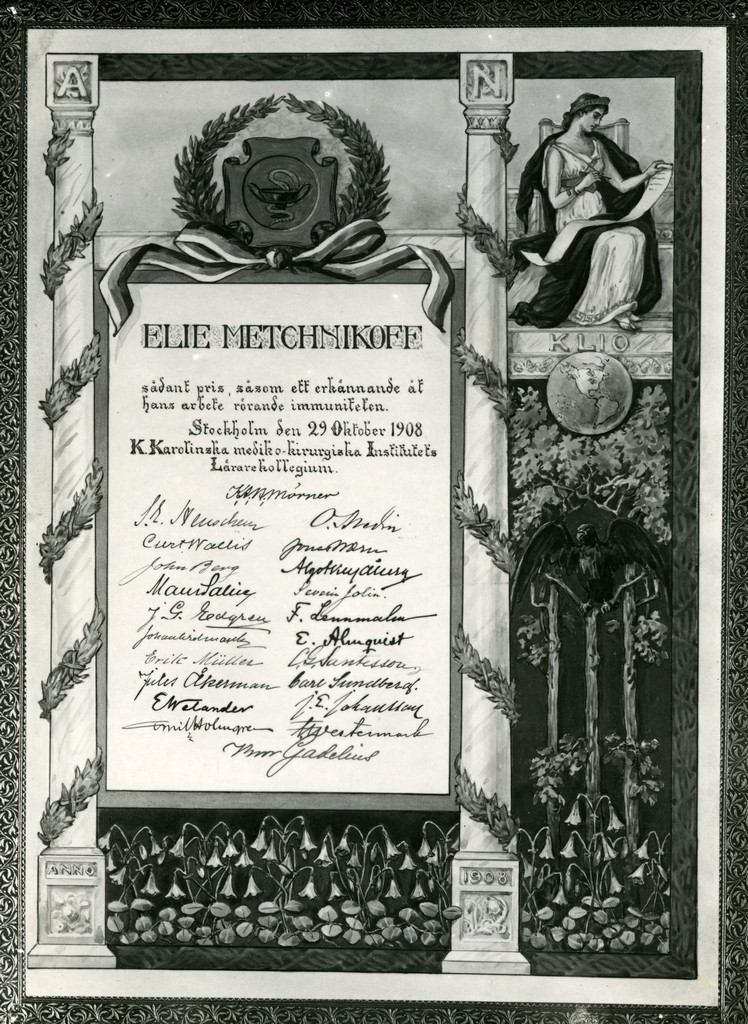 A N
KLIO
ELIE METCHNIKOFF
sådant pris, såsom ett erkännande åt
hans arbete rörande immuniteten.
Stockholm den 29 Oktober 1908
K. Karolinska mediko-kirurgiska Institutets
Lärarekollegium.
K.A.H. Mörner
O. Medin
Curt Wallis
John Berg Algot Key-Åberg
Severin Jolin.
J. G. Edgren F. Lennmalm
E. Almquist
Erik Müller C.G. Santesson.
Jules Åkerman Carl Sundberg.
E Welander J. E. Johansson
Emil Holmgren F Westermark
Bror Gadelius
ANNO 1908